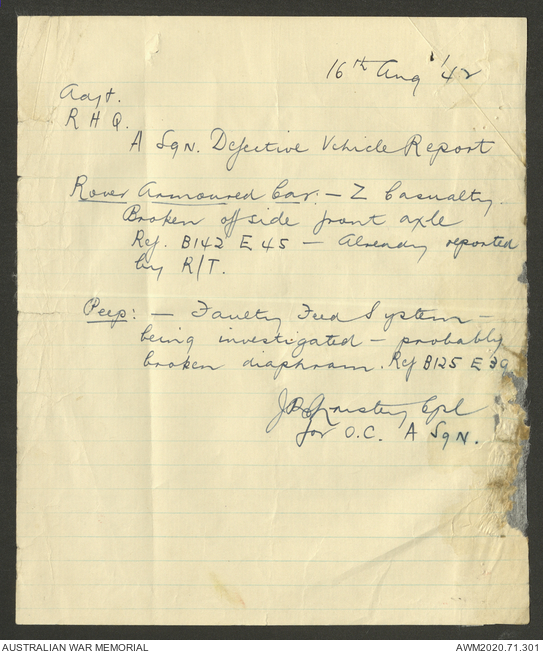 16th Aug '42
Adjt.
R H Q.
A Sqn. Defective Vehicle Report
Rover Armoured Car: – Z Casualty.
Broken offside front axle
Ref. B142 E 45 – Already reported
by R/T.
Peep: – Faulty Feed System –
being investigated – probably
broken diaphram. Ref B125 E 39
Cpl
for O.C. A Sqn.
AUSTRALIAN WAR MEMORIAL
AWM2020.71.301